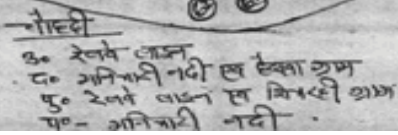 चौहद्दी
उ० रेलवे लाइन
द० मनियारी नदी एवं ग्राम
पु० रेलवे लाइन एवं ग्राम
प०- मनियारी नदी .